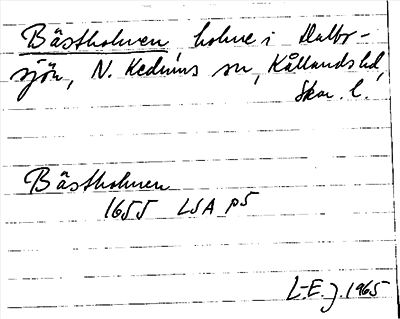 Bästholmen holme i Dalbo-
sjön, N. Kedums sn, Kållands hd,
Skar. l.
Bästholmen
1655 LSA p5
L-E. J. 1965